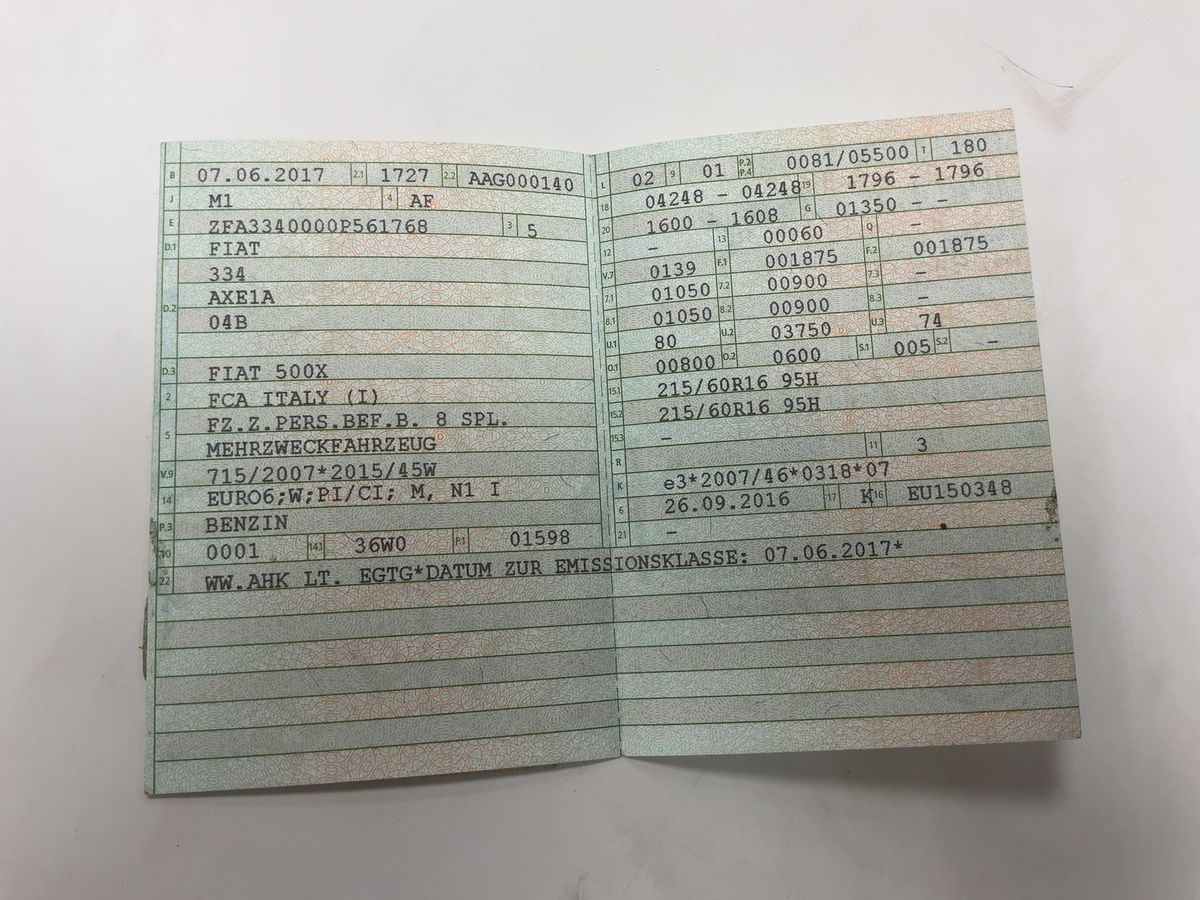 B 07.06.2017 2.1 1727 2.2 AAG000140
J M1 4 AF
E ZFA3340000P561768 3 5
D.1 FIAT
334
D.2 AXE1A
04B
D.3 FIAT 500X
2 FCA ITALY (I)
5 FZ.Z.PERS.BEF.B. 8 SPL.
MEHRZWECKFAHRZEUG
V.9 715/2007*2015/45W
14 EURO6;W;PI/CI; M, N1 I
P.3 BENZIN
10 0001 14.1 36W0 P.1 01598
22 WW.AHK LT. EGTG*DATUM ZUR EMISSIONSKLASSE: 07.06.2017*
L 02 9 01 P.2 P.4 0081/05500 T 180
18 04248 - 04248 19 1796 - 1796
20 1600 - 1608 G 01350 - -
12 - 13 00060 Q -
V.7 0139 F.1 001875 F.2 001875
7.1 01050 7.2 00900 7.3 -
8.1 01050 8.2 00900 8.3 -
U.1 80 U.2 03750 U.3 74
O.1 00800 O.2 0600 S.1 005 S.2 -
15.1 215/60R16 95H
15.2 215/60R16 95H
15.3 -
R 11 3
K e3*2007/46*0318*07
6 26.09.2016 17 K 16 EU150348
21 -